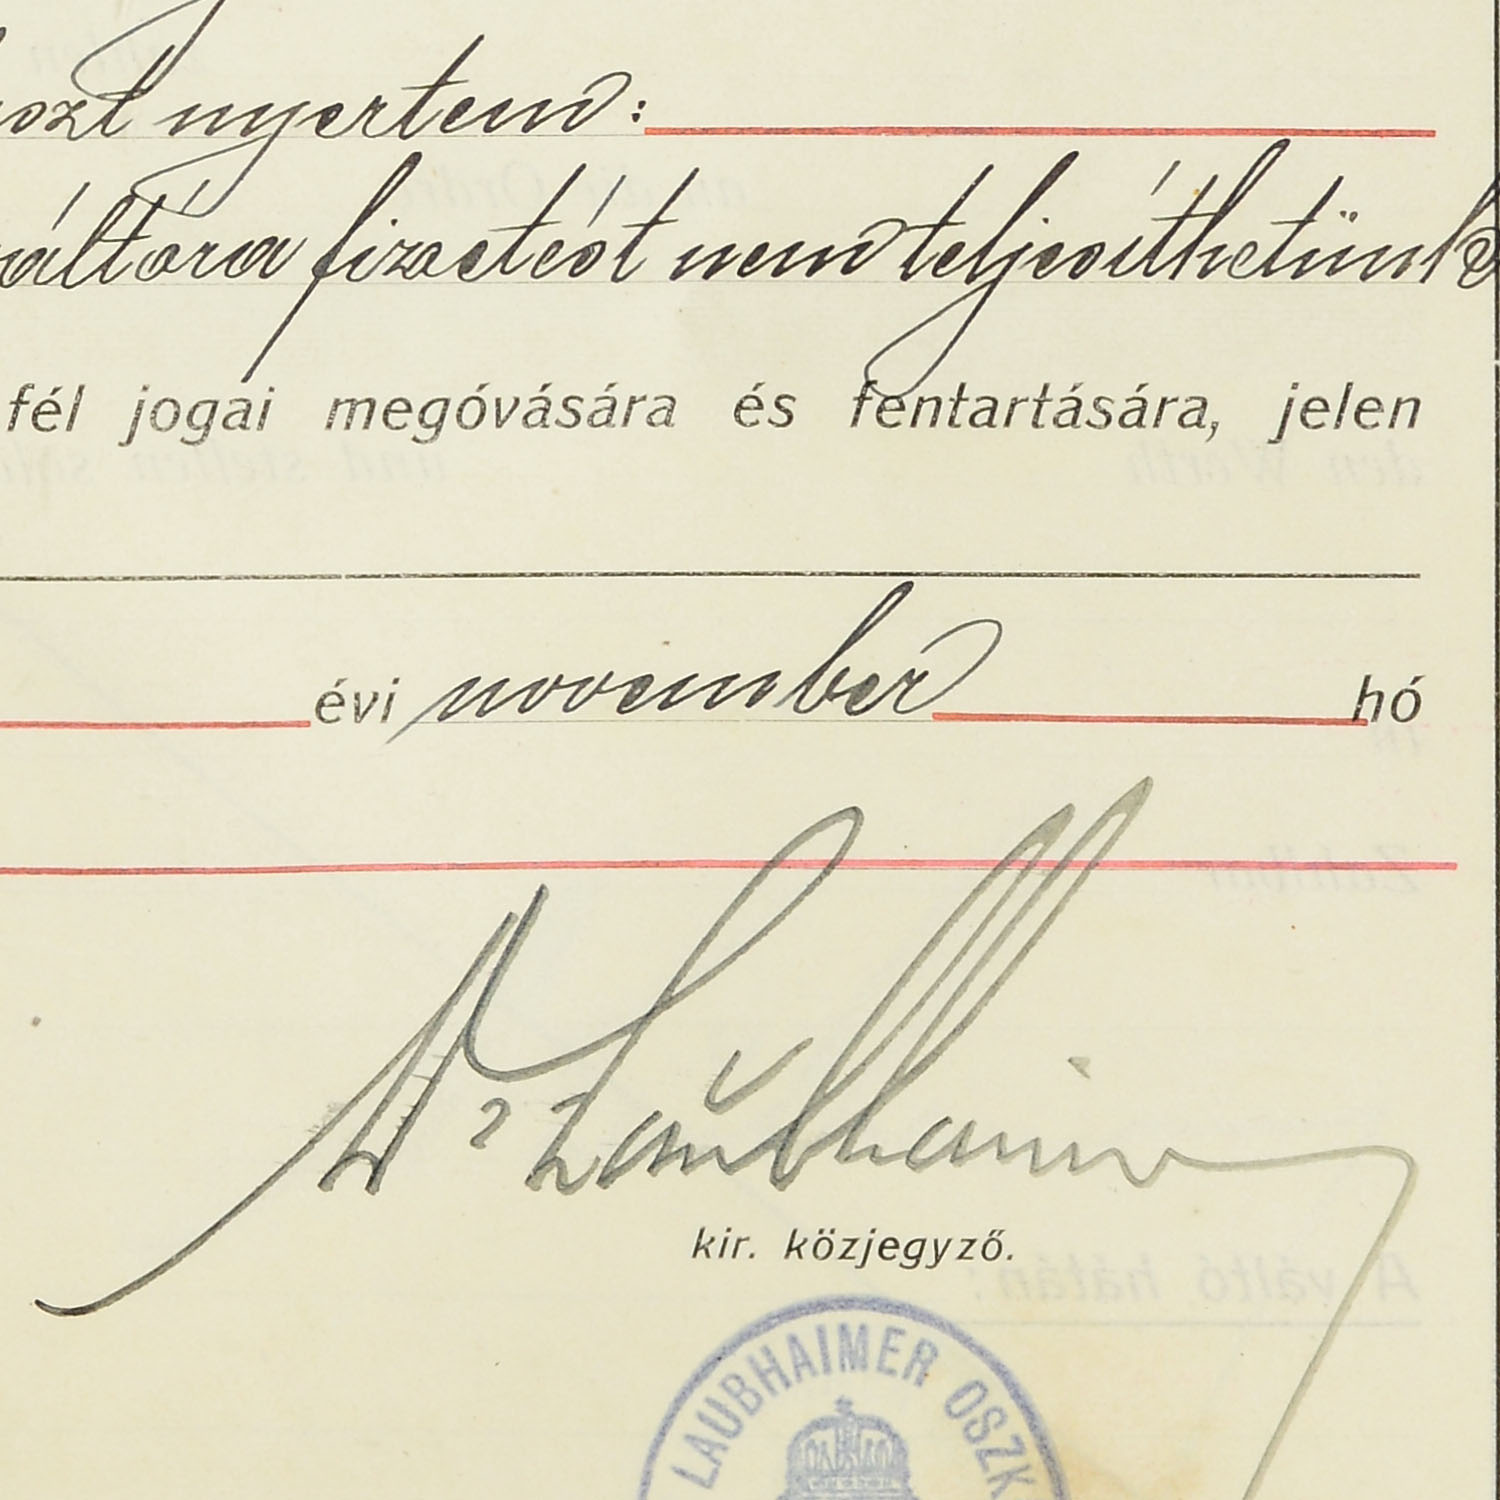 nyertem:
váltóra fizetést nem teljesíthetünk
fél jogai megóvására és fentartására, jelen
évi november hó
Dr Laubhaimer
kir. közjegyző.
LAUBHAIMER OSZK